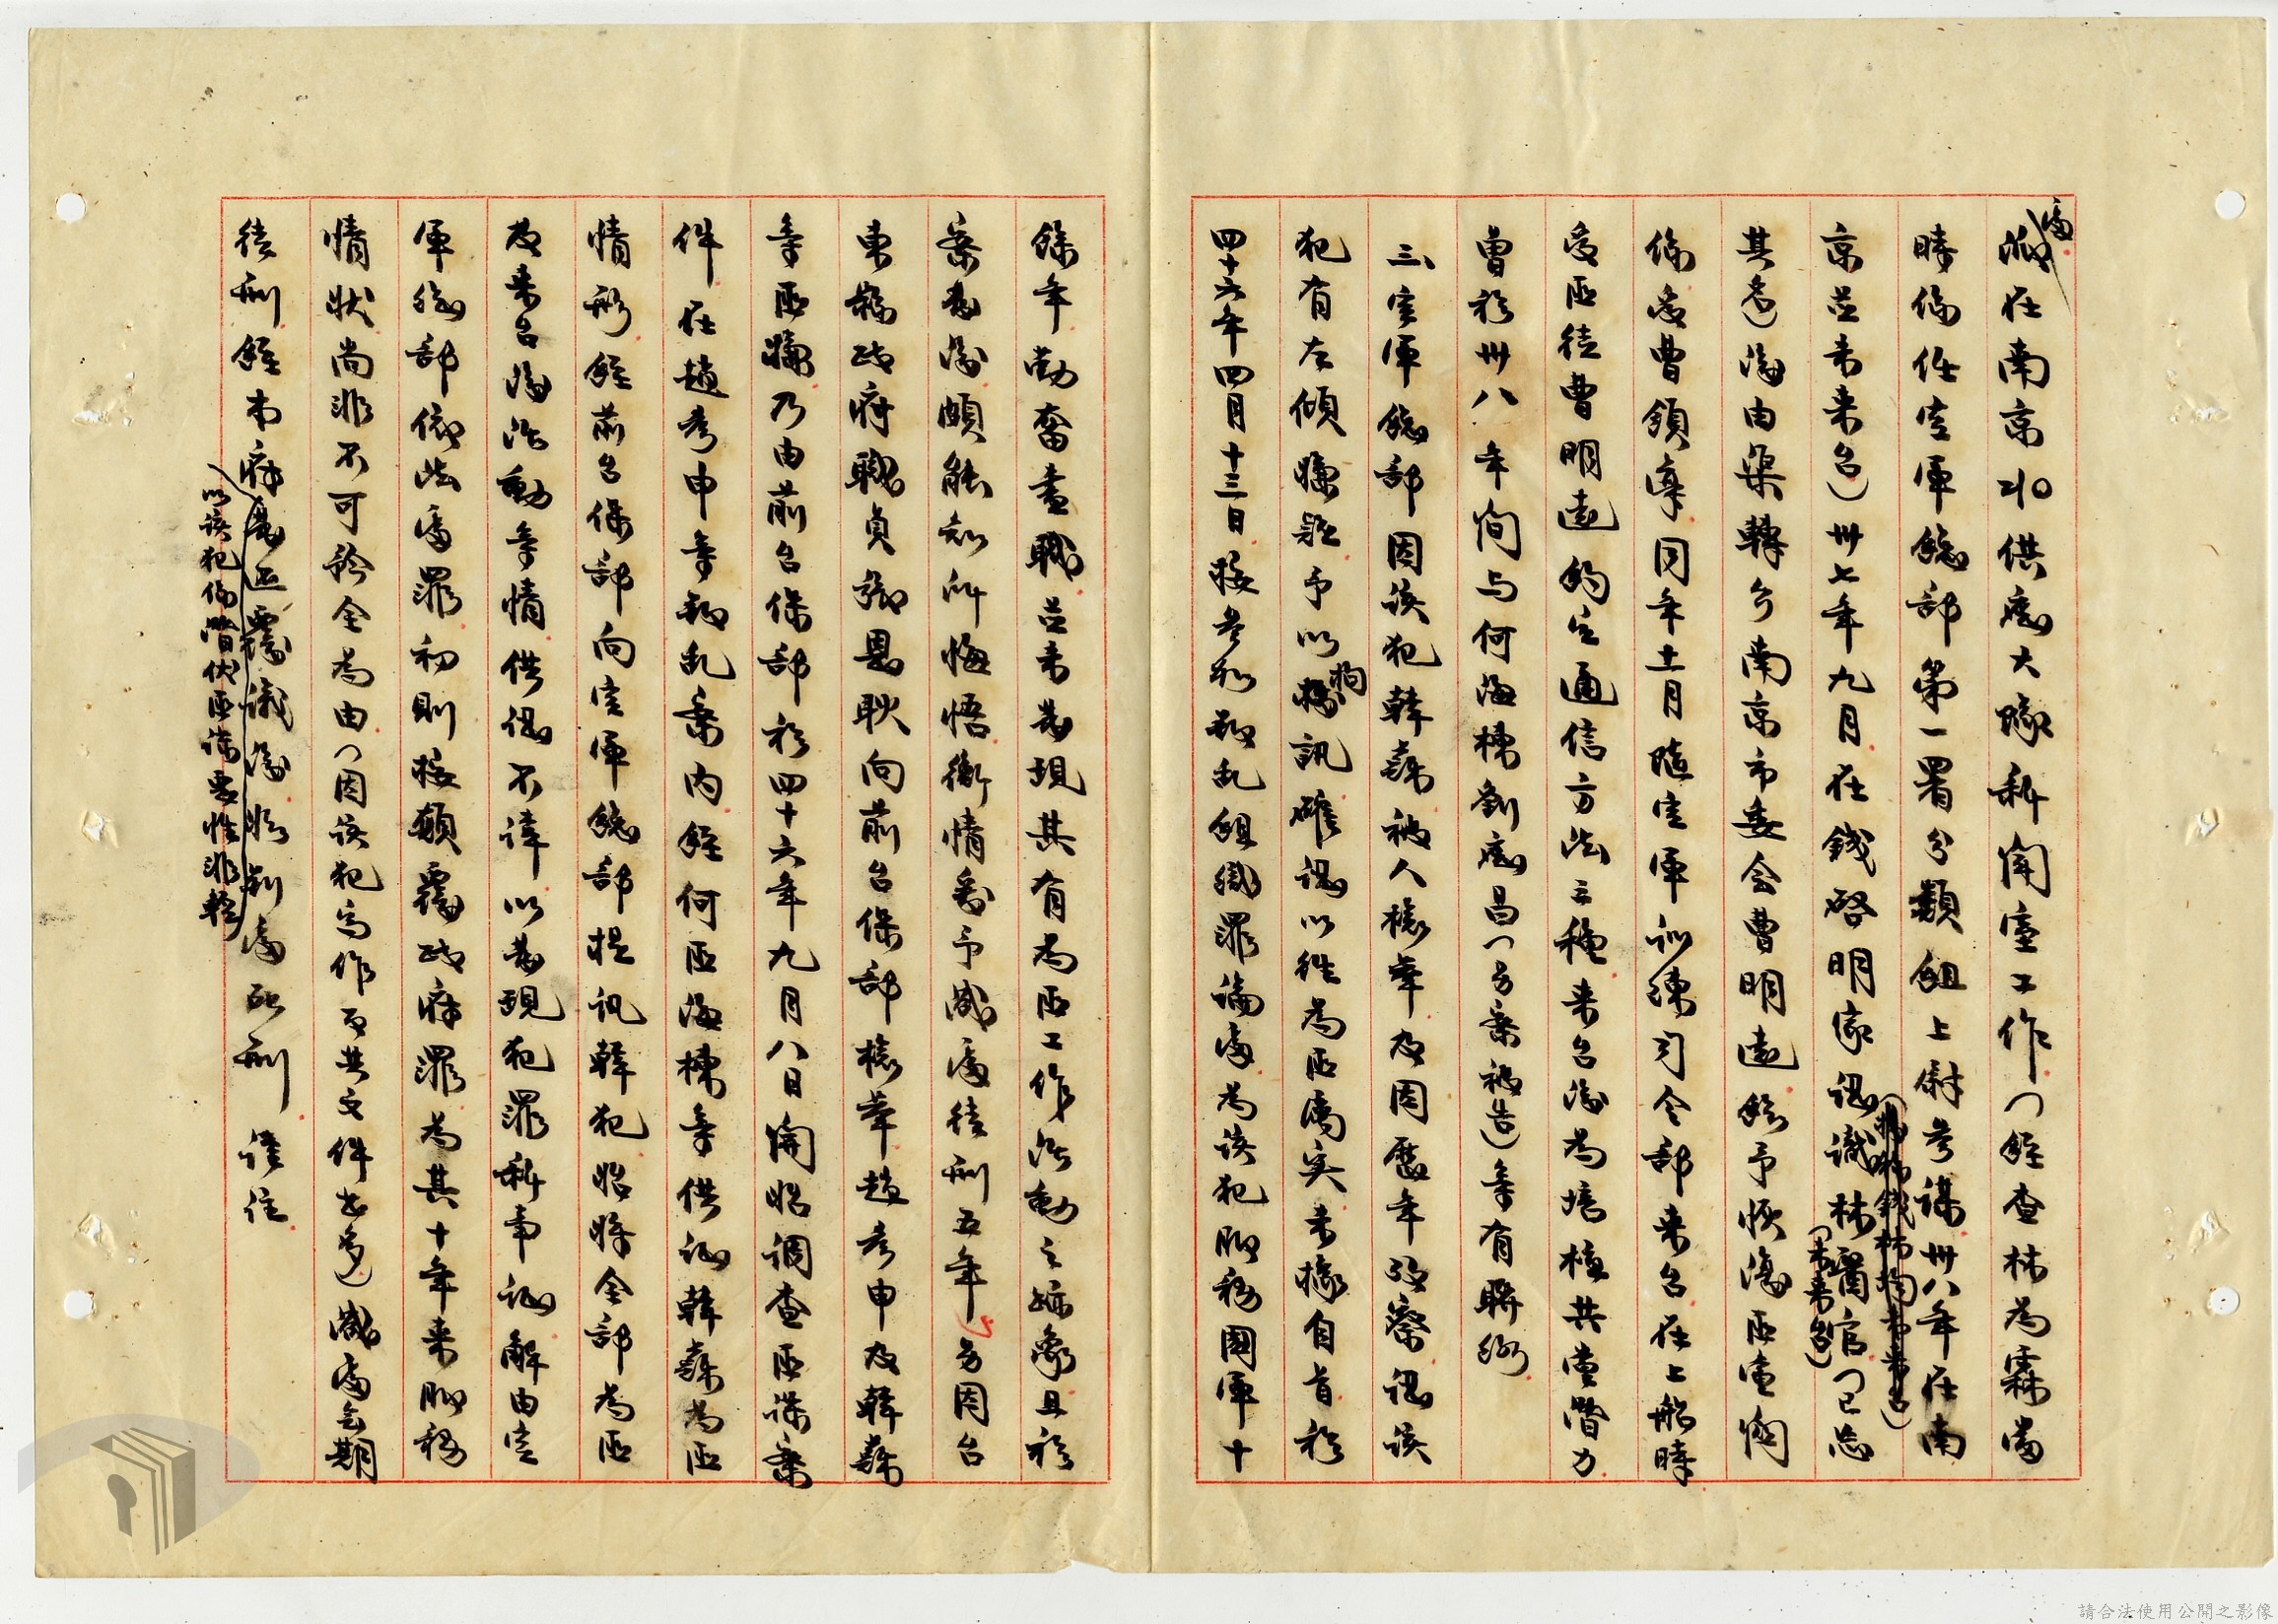 處
在南京水供應大隊新聞室工作（經查林為霖當
時係任空軍總部第一署分類組上尉參謀卅八年在南
京並未來台）卅七年九月在錢啓明家認識林
官（已忘
（未來台）
其名）後由渠轉介南京市委会曹明遠終予恢復匪黨關
係受曹領導同年十一月隨空軍訓練司令部來台在上船時
受匪徒曹明遠約定通信方法三種來台後為培植共党潛力
曾於卅八年間与何海棟劉應昌（另案被告）等有聯絡
三、空軍總部因該犯韓 被人檢舉及因歷年 察認該
犯有左傾嫌疑予以拘訊確認以往為匪屬实未據自首於
四十六年四月十三日按參加叛乱組織罪論處為該犯服務國軍十
餘年勤奮盡職並未發現其有為匪工作活動之跡象且於
案發後頗能知所悔悟衡情酌予減處徒刑五年另因台
東縣政府職員鄒恩耿向前台保部檢舉趙彥申及韓
等匪嫌乃由前台保部於四十六年九月八日開始調查匪諜案
件在趙彥申等叛乱案内經何匪海棟等供證韓 為匪
情形經前台保部向空軍總部提訊韓犯始將全部為匪
及來台後活動等情供認不諱以發現犯罪新事證解由空
軍總部依法處罪初則按顛覆政府罪為其十年來服務
情狀尚非不可矜全為由（因該犯寫作反共文件甚多）減處無期
徒刑經本府
覆議後
判處死刑
以該犯係潛伏匪諜惡性非輕